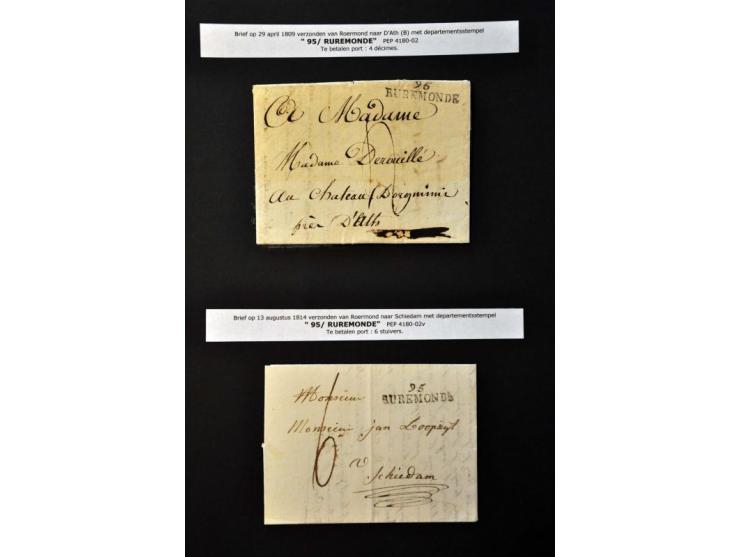 Brief op 29 april 1809 verzonden van Roermond naar D'Ath (B) met departementsstempel
" 95/ RUREMONDE" PEP 4180-02
Te betalen port : 4 décimes.
95
RUREMONDE
A Madame
Madame Derouillé
Au Chateau
près D'Ath
Brief op 13 augustus 1814 verzonden van Roermond naar Schiedam met departementsstempel
" 95/ RUREMONDE" PEP 4180-02v
Te betalen port : 6 stuivers.
95
RUREMONDE
Monsieur
Monsieur jan Loopuyt
6
Schiedam